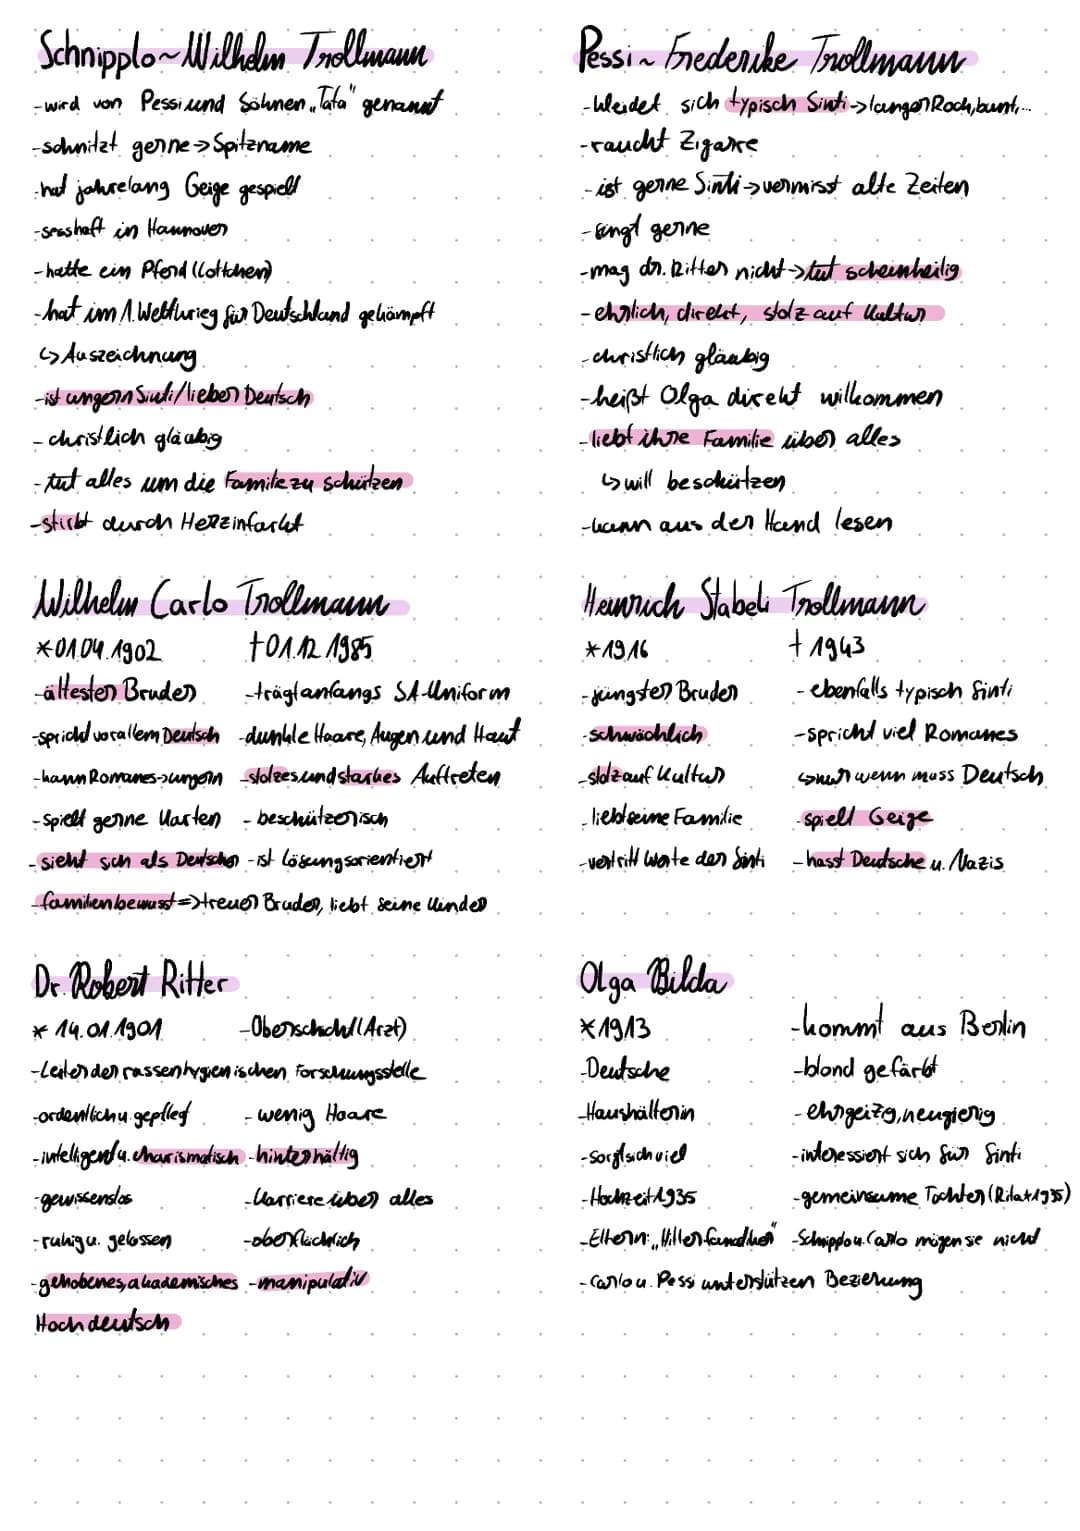 Schnipplo~Wilhelm Trollmann
-wird von Pessi und Söhnen „Tata" genannt
-schnitzt gerne->Spitzname
-hat jahrelang Geige gespielt
-sesshaft in Hannover
-hatte ein Pferd (Lottchen)
-hat im 1. Weltkrieg für Deutschland gekämpft
↳Auszeichnung
-ist ungern Sinti/lieber Deutsch
-christlich gläubig
-tut alles um die Familie zu schützen
-stirbt durch Herzinfarkt
Pessi~Frederike Trollmann
-kleidet sich typisch Sinti->langer Rock, bunt,...
-raucht Zigarre
-ist gerne Sinti->vermisst alte Zeiten
-singt gerne
-mag dr. Ritter nicht->tut scheinheilig
-ehrlich, direkt, stolz auf Kultur
-christlich gläubig
-heißt Olga direkt willkommen
-liebt ihre Familie über alles
↳will beschützen
-kann aus der Hand lesen
Wilhelm Carlo Trollmann
*01.04.1902 †01.12.1985
-ältester Bruder -trägt anfangs SA-Uniform
-spricht vor allem Deutsch -dunkle Haare, Augen und Haut
-kann Romanes->ungern -stolzes und starkes Auftreten
-spielt gerne Karten -beschützerisch
-sieht sich als Deutscher -ist lösungsorientiert
-familienbewusst=>treuer Bruder, liebt seine Kinder
Heinrich Stabeli Trollmann
*1916 †1943
-jüngster Bruder -ebenfalls typisch Sinti
-schwächlich -spricht viel Romanes
-stolz auf Kultur ↳nur wenn muss Deutsch
-liebt seine Familie -spielt Geige
-vertritt Werte der Sinti -hasst Deutsche u. Nazis
Dr. Robert Ritter
*14.01.1901 -Oberschicht (Arzt)
-Leiter der rassenhygienischen Forschungsstelle
-ordentlich u. gepflegt -wenig Haare
-intelligent u. charismatisch -hinterhältig
-gewissenslos -Karriere über alles
-ruhig u. gelassen -oberflächlich
-gehobenes, akademisches -manipulativ
Hochdeutsch
Olga Bilda
*1913 -kommt aus Berlin
-Deutsche -blond gefärbt
-Haushälterin -ehrgeizig, neugierig
-sorgt sich viel -interessiert sich für Sinti
-Hochzeit 1935 -gemeinsame Tochter (Rita *1935)
-Eltern: -Schnipplo u. Carlo mögen sie nicht
-Carlo u. Pessi unterstützen Bezierung